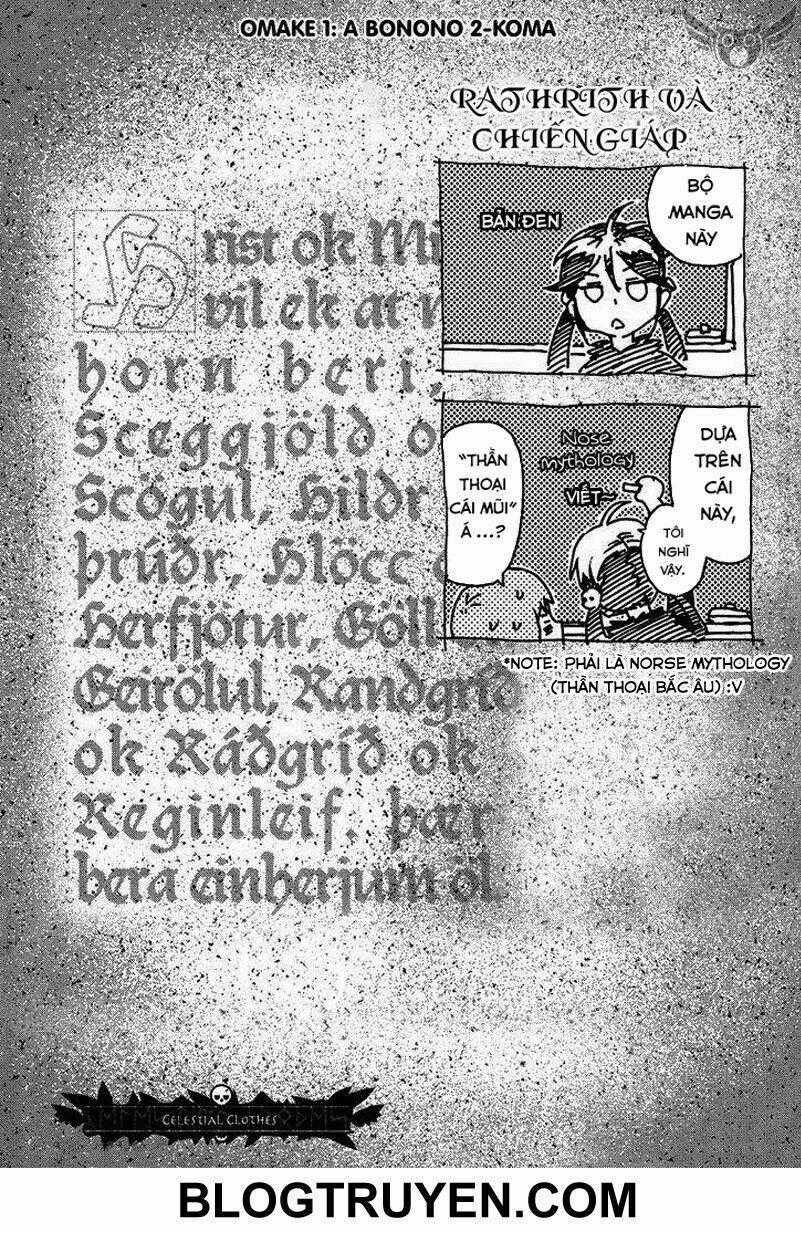 OMAKE 1: A BONONO 2-KOMA
RATHRITH VÀ
CHIẾN GIÁP
BỘ
MANGA
NÀY
BẢN ĐEN
DỰA
TRÊN
CÁI
NÀY,
Nose
mythology
VIẾT~
TÔI
NGHĨ
VẬY.
"THẦN
THOẠI
CÁI MŨI"
Á ...?
*NOTE: PHẢI LÀ NORSE MYTHOLOGY
(THẦN THOẠI BẮC ÂU) :V
Hrist ok Mi
vil ek at
horn beri,
Sceggjöld o
Scögul, Hildr
þrúðr, Hlöcc
Herfjötur, Göll
Geirölul, Randgríð
ok Ráðgríð ok
Reginleif. þær
bera einherjum öl
CELESTIAL CLOTHES
BLOGTRUYEN.COM